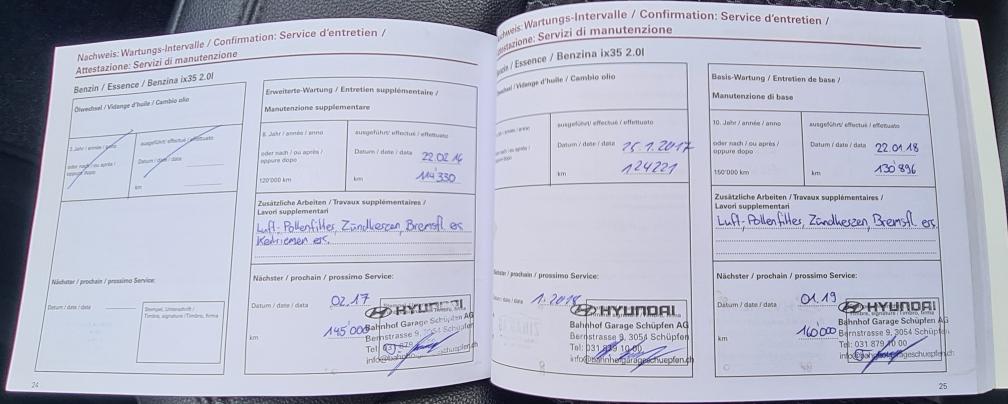 Nachweis: Wartungs-Intervalle / Confirmation: Service d'entretien /
Attestazione: Servizi di manutenzione
Benzin / Essence / Benzina ix35 2.0l
Ölwechsel / Vidange d'huile / Cambio olio
ausgeführt / effectué / effettuato
oder nach / ou après /
oppure dopo
Datum / date / data
km
Nächster / prochain / prossimo Service:
Datum / date / data
Stempel, Unterschrift /
Timbre, signature / Timbro, firma
24
Erweiterte-Wartung / Entretien supplémentaire /
Manutenzione supplementare
8. Jahr / année / anno
ausgeführt / effectué / effettuato
oder nach / ou après /
oppure dopo
Datum / date / data 22.02.16
120'000 km
km 114'330
Zusätzliche Arbeiten / Travaux supplémentaires /
Lavori supplementari
Luft-Pollenfilter, Zündkerzen, Bremsfl. ers.
Keilriemen ers.
Nächster / prochain / prossimo Service:
Datum / date / data 02.17
km 145'000
HYUNDAI
Bahnhof Garage Schüpfen AG
Bernstrasse 9, 3054 Schüpfen
Tel. 031 879
Nachweis: Wartungs-Intervalle / Confirmation: Service d'entretien /
Attestazione: Servizi di manutenzione
Benzin / Essence / Benzina ix35 2.0l
Ölwechsel / Vidange d'huile / Cambio olio
ausgeführt / effectué / effettuato
Datum / date / data 25.1.2017
km 124221
Nächster / prochain / prossimo Service:
Datum / date / data 1.2018
HYUNDAI
Bahnhof Garage Schüpfen AG
Bernstrasse 9, 3054 Schüpfen
Tel. 031 879 10 00
info@bahnhofgarageschuepfen.ch
Basis-Wartung / Entretien de base /
Manutenzione di base
10. Jahr / année / anno
ausgeführt / effectué / effettuato
oder nach / ou après /
oppure dopo
Datum / date / data 22.01.18
150'000 km
km 130'896
Zusätzliche Arbeiten / Travaux supplémentaires /
Lavori supplementari
Luft-Pollenfilter, Zündkerzen, Bremsfl. ers.
Nächster / prochain / prossimo Service:
Datum / date / data 01.19
km 160'000
HYUNDAI
Bahnhof Garage Schüpfen AG
Bernstrasse 9, 3054 Schüpfen
Tel. 031 879 10 00
info@bahnhofgarageschuepfen.ch
25